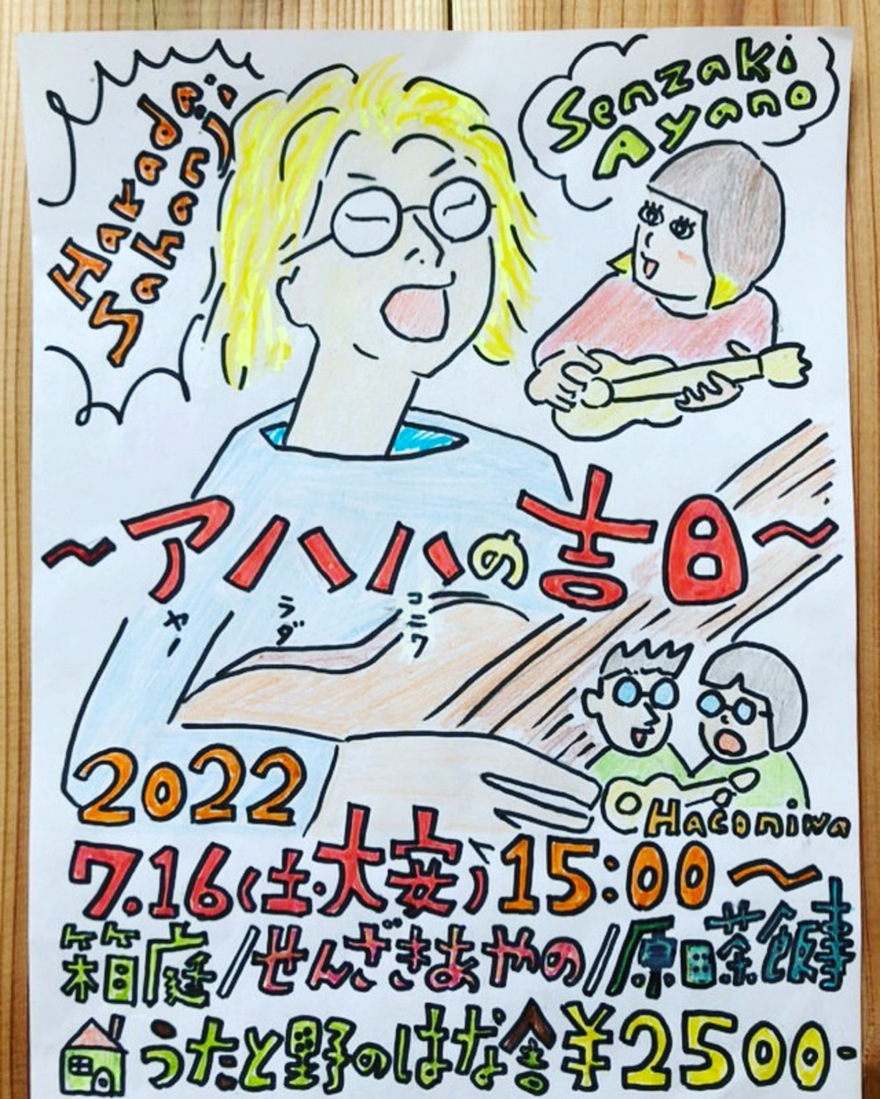 Harada
Sahanji
Senzaki
Ayano
~アハハの吉日~
ヤー
ラダ
コニワ
2022
Haconiwa
7.16(土・大安)15:00~
箱庭/せんざきあやの/原田茶飯事
うたと野のはな舎 ¥2500-